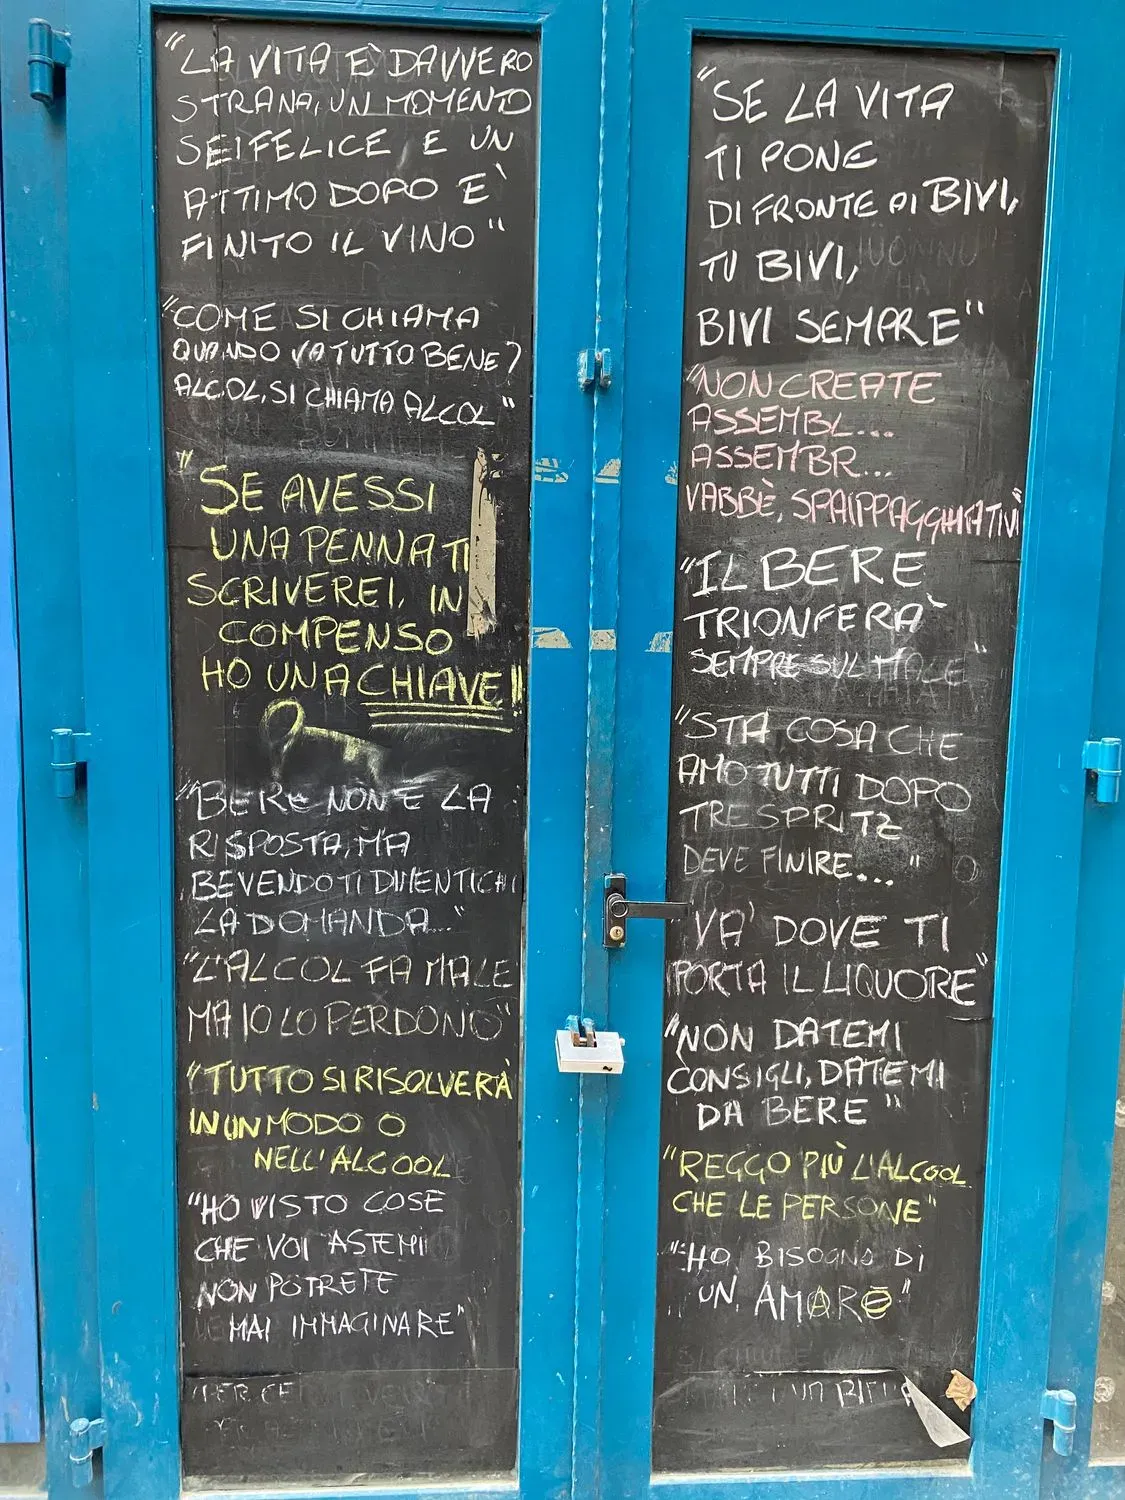 "LA VITA E' DAVVERO
STRANA, UN MOMENTO
SEI FELICE E UN
ATTIMO DOPO E'
FINITO IL VINO"
"COME SI CHIAMA
QUANDO VA TUTTO BENE?
ALCOL, SI CHIAMA ALCOL"
"SE AVESSI
UNA PENNA TI
SCRIVEREI, IN
COMPENSO
HO UNA CHIAVE!!
"BERE NON È LA
RISPOSTA, MA
BEVENDO TI DIMENTICHI
LA DOMANDA..."
"L'ALCOL FA MALE
MA IO LO PERDONO"
"TUTTO SI RISOLVERÀ
IN UN MODO O
NELL'ALCOOL
"HO VISTO COSE
CHE VOI ASTEMI
NON POTRETE
MAI IMMAGINARE"
"SE LA VITA
TI PONE
DI FRONTE AI BIVI,
TU BIVI,
BIVI SEMPRE"
"NON CREATE
ASSEMBL...
ASSEMBR...
VABBÈ, SPAIPPAGGHIATIVI"
"IL BERE
TRIONFERÀ
SEMPRE SUL MALE"
"STA COSA CHE
AMO TUTTI DOPO
TRE SPRITZ
DEVE FINIRE..."
VA' DOVE TI
PORTA IL LIQUORE"
"NON DATEMI
CONSIGLI, DATEMI
DA BERE"
"REGGO PIÙ L'ALCOOL
CHE LE PERSONE"
"HO BISOGNO DI
UN AMARO"